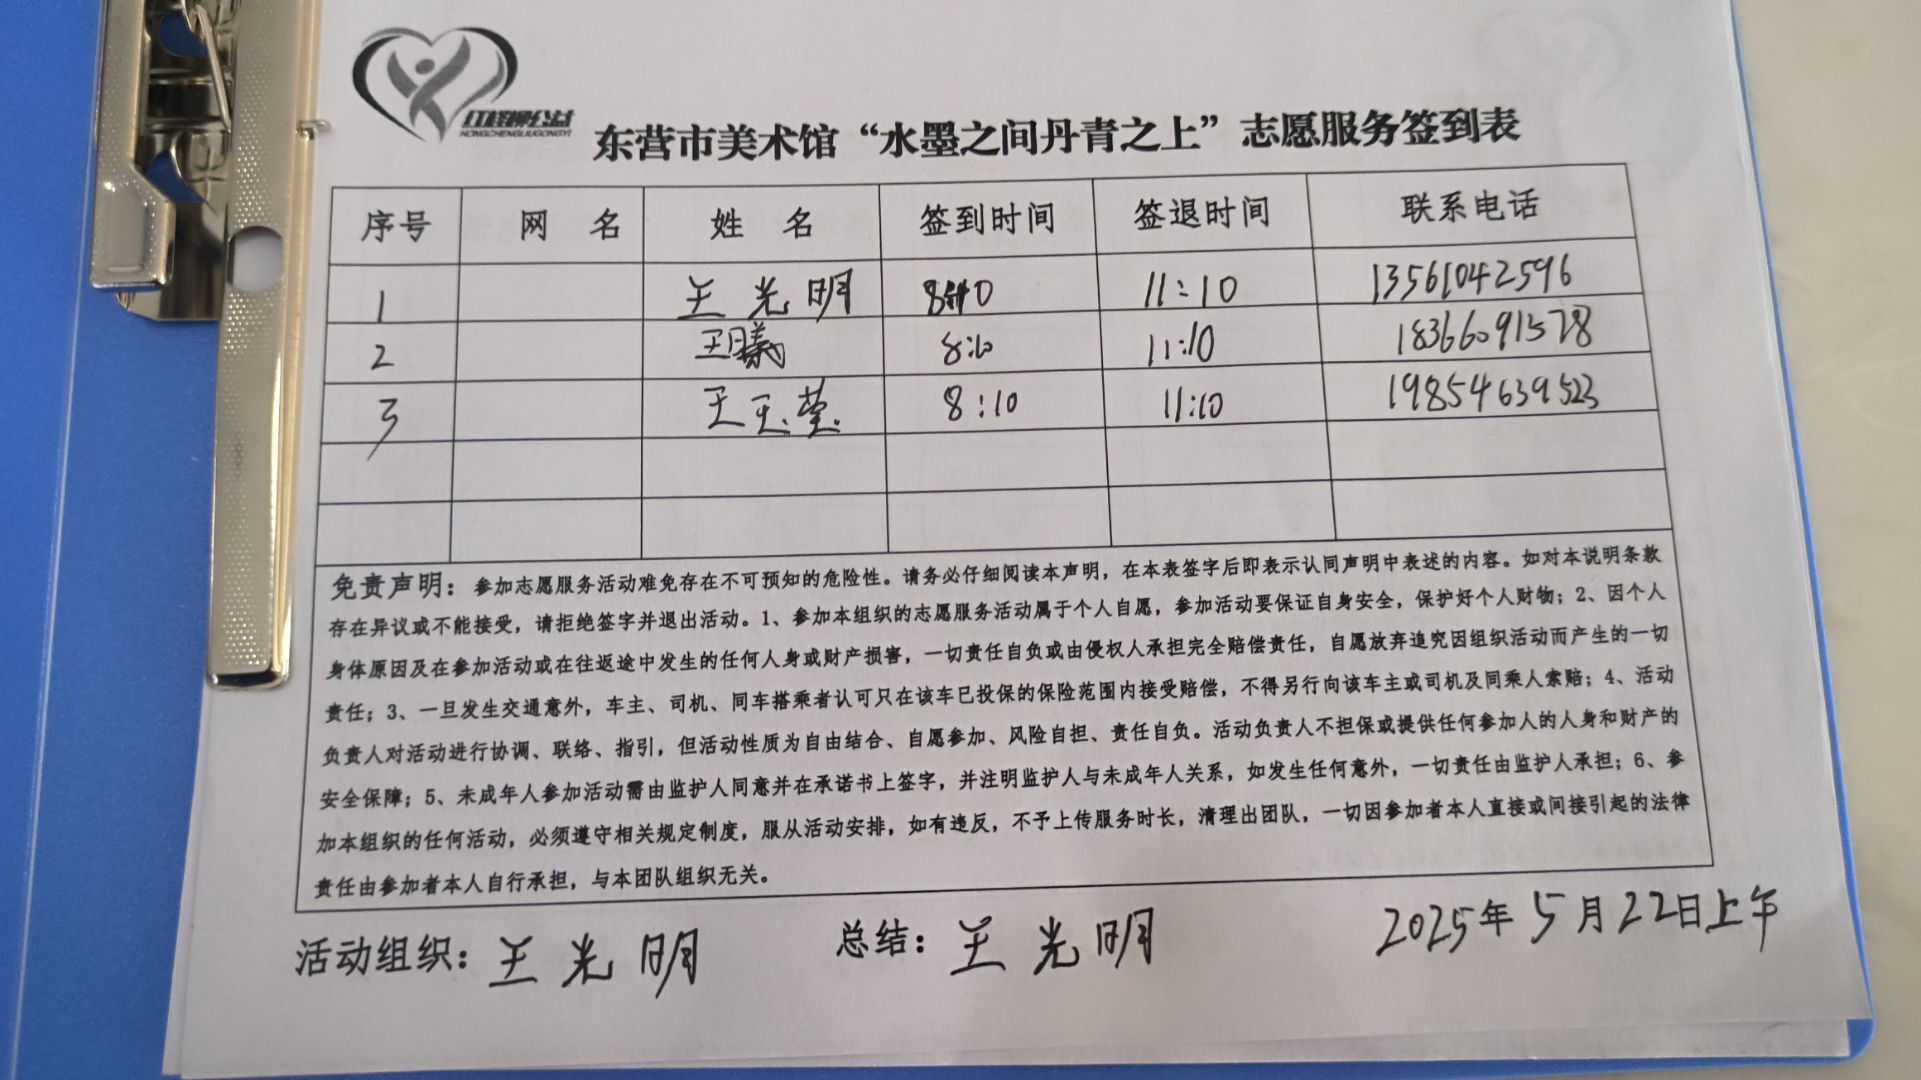 红橙柳公益
HONGCHENGLIUGONGYI
东营市美术馆“水墨之间丹青之上”志愿服务签到表
序号 网 名 姓 名 签到时间 签退时间 联系电话
1 王光明 11:10 13561042596
2 8:10 11:10 18366091578
3 王玉莹 8:10 11:10 19854639523
免责声明：参加志愿服务活动难免存在不可预知的危险性。请务必仔细阅读本声明，在本表签字后即表示认同声明中表述的内容。如对本说明条款
存在异议或不能接受，请拒绝签字并退出活动。1、参加本组织的志愿服务活动属于个人自愿，参加活动要保证自身安全，保护好个人财物；2、因个人
身体原因及在参加活动或在往返途中发生的任何人身或财产损害，一切责任自负或由侵权人承担完全赔偿责任，自愿放弃追究因组织活动而产生的一切
责任；3、一旦发生交通意外，车主、司机、同车搭乘者认可只在该车已投保的保险范围内接受赔偿，不得另行向该车主或司机及同乘人索赔；4、活动
负责人对活动进行协调、联络、指引，但活动性质为自由结合、自愿参加、风险自担、责任自负。活动负责人不担保或提供任何参加人的人身和财产的
安全保障；5、未成年人参加活动需由监护人同意并在承诺书上签字，并注明监护人与未成年人关系，如发生任何意外，一切责任由监护人承担；6、参
加本组织的任何活动，必须遵守相关规定制度，服从活动安排，如有违反，不予上传服务时长，清理出团队，一切因参加者本人直接或间接引起的法律
责任由参加者本人自行承担，与本团队组织无关。
活动组织：王光明 总结：王光明 2025年5月22日上午